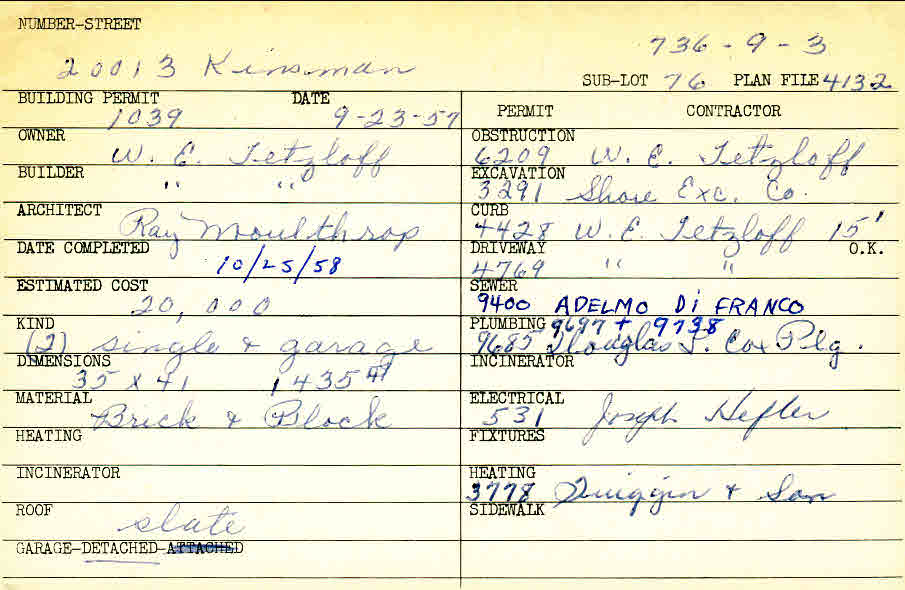 NUMBER-STREET
736-9-3
20013 Kinsman
SUB-LOT 76 PLAN FILE 4132
BUILDING PERMIT DATE
1039 9-23-57
OWNER
W. E. Tetzloff
BUILDER
" "
ARCHITECT
Ray Moulthrop
DATE COMPLETED
10/25/58
ESTIMATED COST
20,000
KIND
(2) single & garage
DIMENSIONS
35 x 41 1435
MATERIAL
Brick & Block
HEATING
INCINERATOR
ROOF
slate
GARAGE-DETACHED-ATTACHED
PERMIT CONTRACTOR
OBSTRUCTION
6209 W. E. Tetzloff
EXCAVATION
3291 Shore Exc. Co.
CURB
4428 W. E. Tetzloff 15'
DRIVEWAY O.K.
4769 " "
SEWER
9400 ADELMO Di FRANCO
PLUMBING 9697 + 9738
9685 Douglas L. Cox Plg.
INCINERATOR
ELECTRICAL
531 Joseph Hefler
FIXTURES
HEATING
3778 Quiggin & Son
SIDEWALK